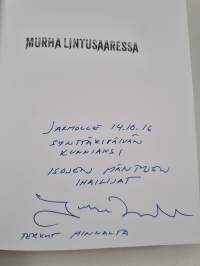 MURHA LINTUSAARESSA
JARMOLLE 14.10.16
SYNTTÄRIPÄIVÄN
KUNNIAKSI
ISOJEN MÄNTYJEN
IHAILIJAT
TERKUT MINNALTA